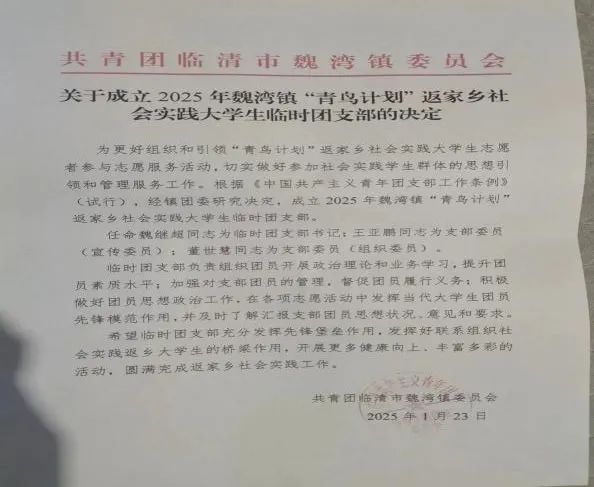 共青团临清市魏湾镇委员会
关于成立 2025 年魏湾镇“青鸟计划”返家乡社
会实践大学生临时团支部的决定
为更好组织和引领“青鸟计划”返家乡社会实践大学生志愿
者参与志愿服务活动，切实做好参加社会实践学生群体的思想引
领和管理服务工作。根据《中国共产主义青年团支部工作条例》
（试行），经镇团委研究决定，成立 2025 年魏湾镇“青鸟计划”
返家乡社会实践大学生临时团支部。
任命魏继超同志为临时团支部书记；王亚鹏同志为支部委员
（宣传委员）；董世慧同志为支部委员（组织委员）。
临时团支部负责组织团员开展政治理论和业务学习，提升团
员素质水平；加强对支部团员的管理，督促团员履行义务；积极
做好团员思想政治工作，在各项志愿活动中发挥当代大学生团员
先锋模范作用，并及时了解汇报支部团员思想状况、意见和要求。
希望临时团支部充分发挥先锋堡垒作用，发挥好联系组织社
会实践返乡大学生的桥梁作用，开展更多健康向上、丰富多彩的
活动，圆满完成返家乡社会实践工作。
共青团临清市魏湾镇委员会
2025 年 1 月 23 日